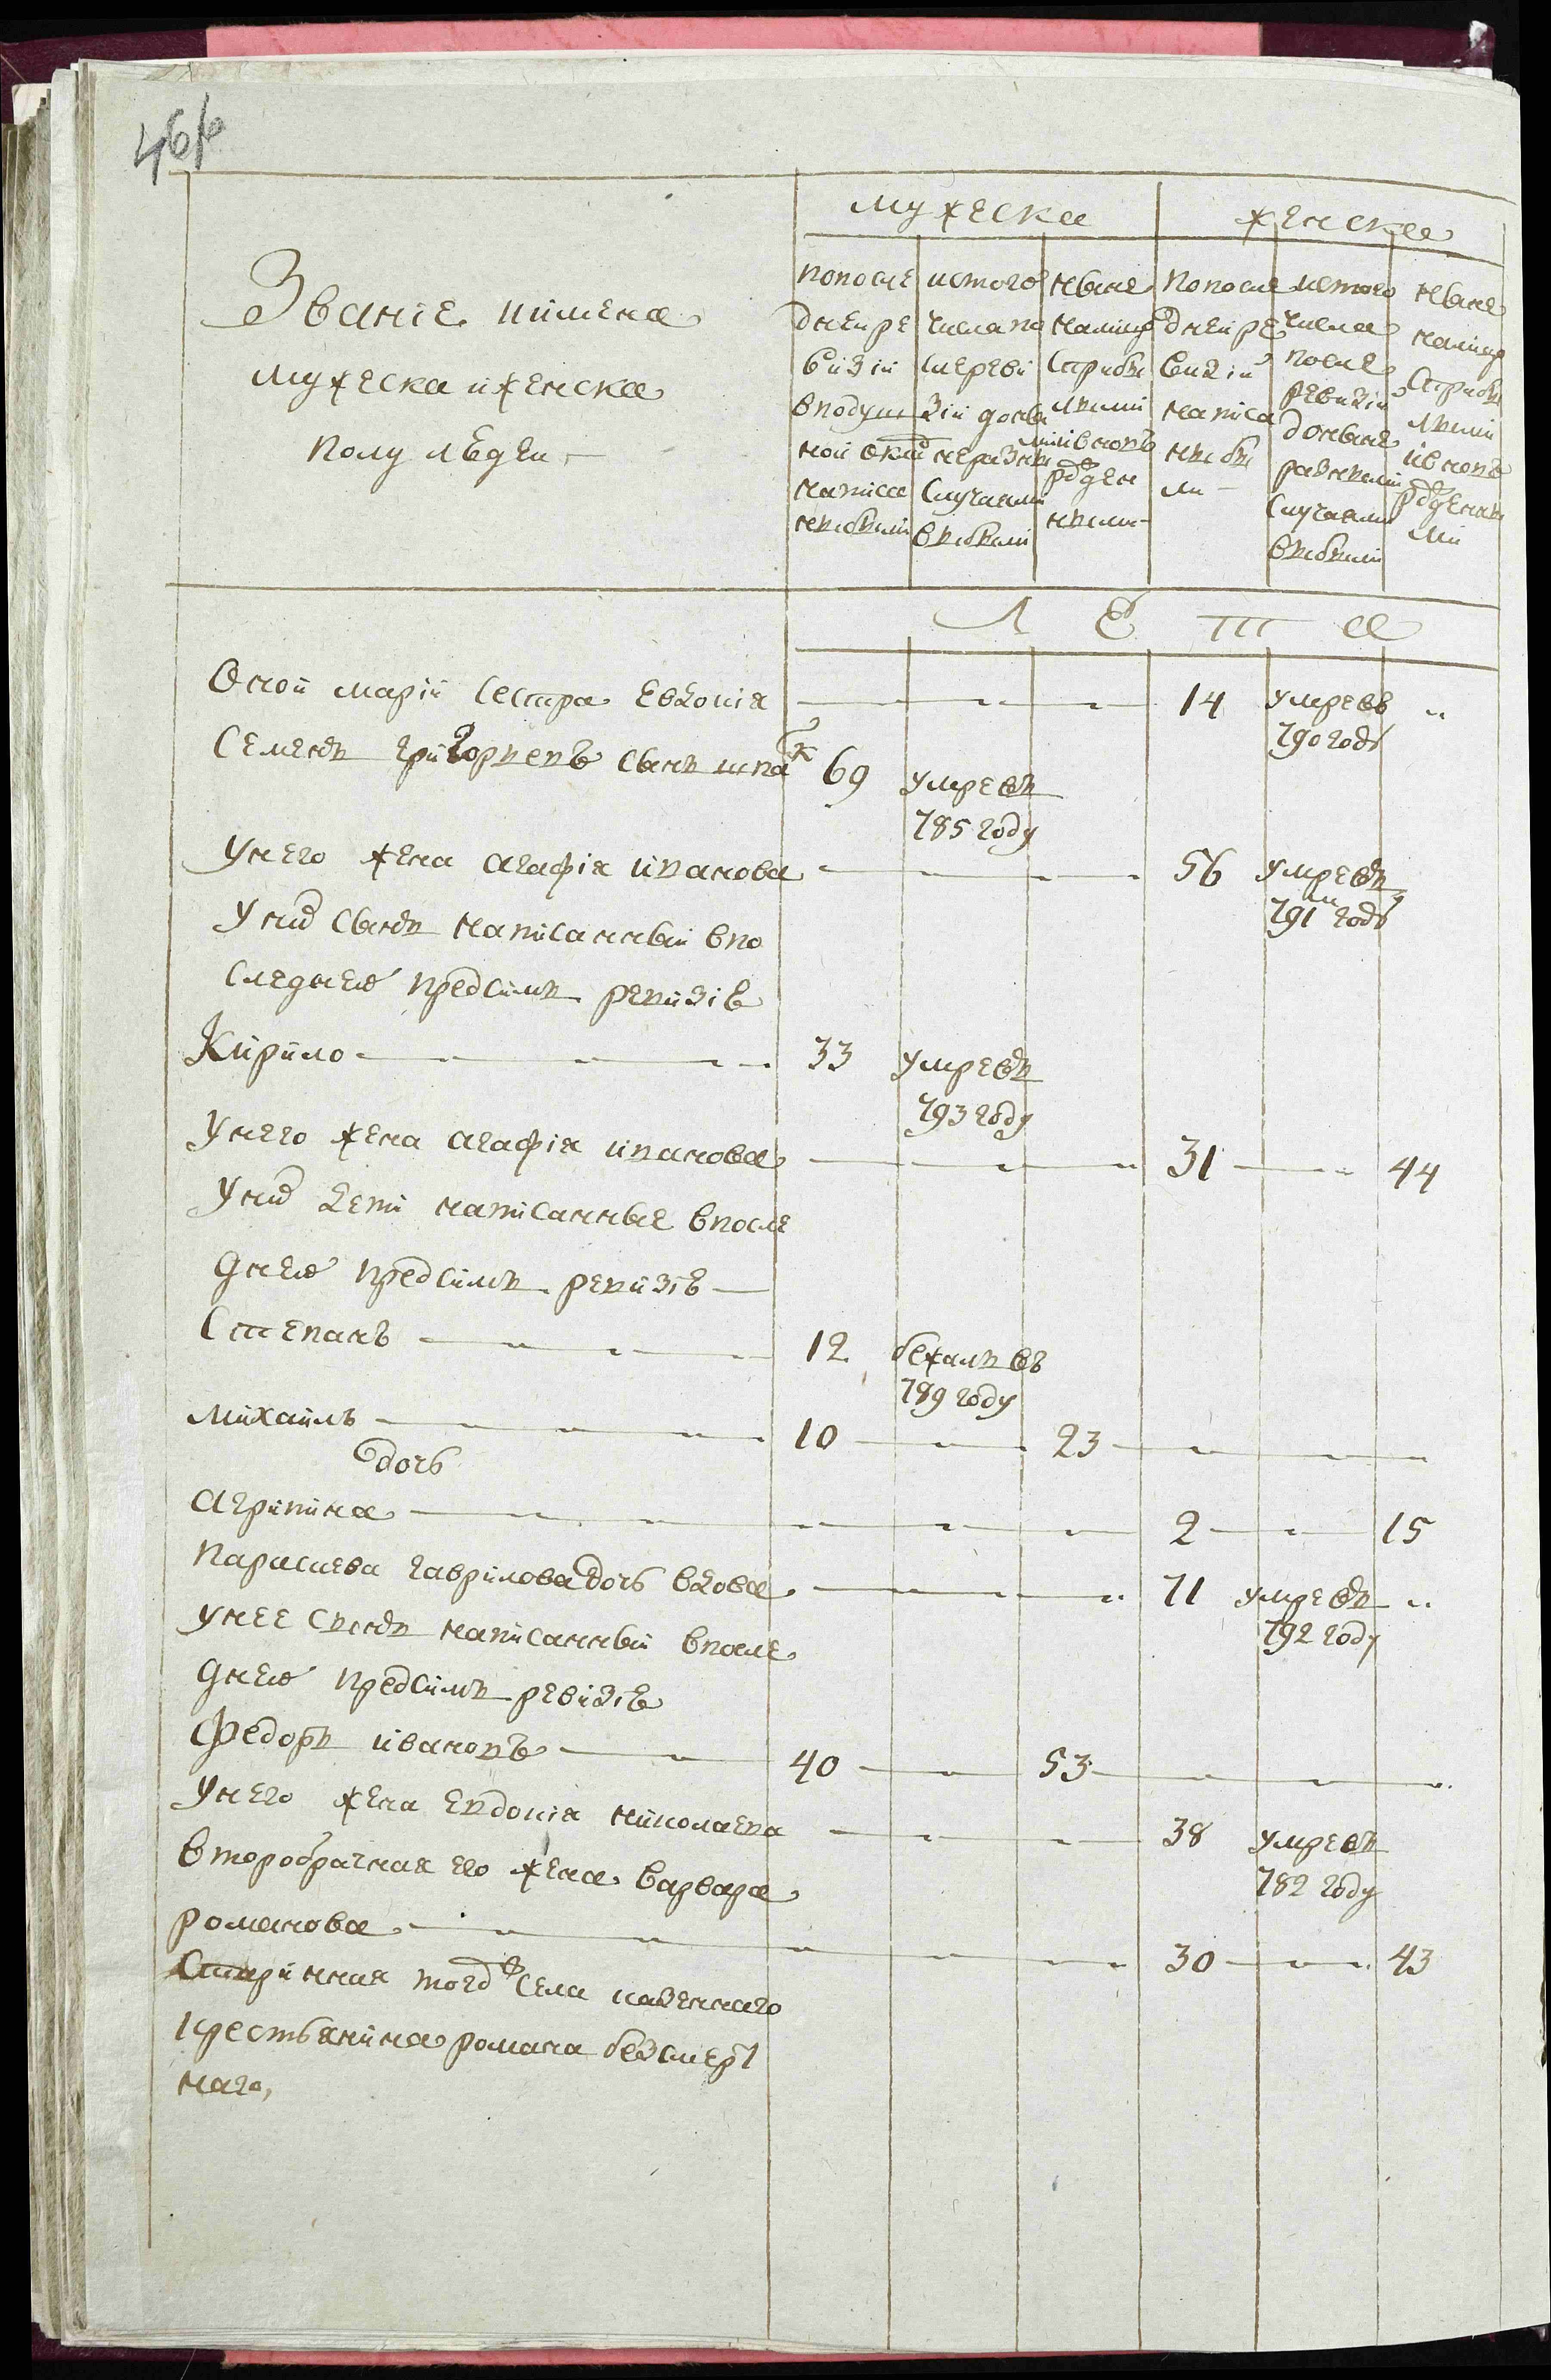 Званіе иимена
мужеска иженска
полу людей
мужеска
женска
попосле
дней ре
визіи
вподуш
ной окла
написа
ныхъ
исъ того
числа по
сле реви
зіи доны
не разны
случаями
выбыли
ныне
налицо
съприбы
лыми
ивновь
рожден
ными
попосле
дней ре
визіи
написа
ны бы
ли
исъ того
числа
после
ревизіи
доныне
разными
случаями
выбыли
ныне
налицо
съприбы
лыми
ивновь
рожденны
ми
Л е т а
Оной маріи сестра Евдокія 14 умре въ
790 годѣ
Семенъ григорьевъ сынъ шпак 69 умре въ
785 году
У него жена агафія иванова 56 умре въ
791м годѣ
У них сынъ написанный впо
следнею предсимъ ревизіе
Кирило 33 умре въ
793 году
У него жена агафія иванова 31 44
У них дети написанные впосле
днею предсимъ ревизіе
Степанъ 12 бежалъ въ
789 году
михаилъ 10 23
дочь
агрипина 2 15
парасцева гаврилова дочь вдова 71 умре въ
792 году
у нее сынъ написанный впосле
днею предсимъ ревизіе
Федоръ ивановъ 40 53
У него жена евдокія николаева 38 умре въ
782 году
Второбрачная его жена варвара
романова 30 43
Старинная того села казеннаго
крестьянина романа безсмерт
наго,